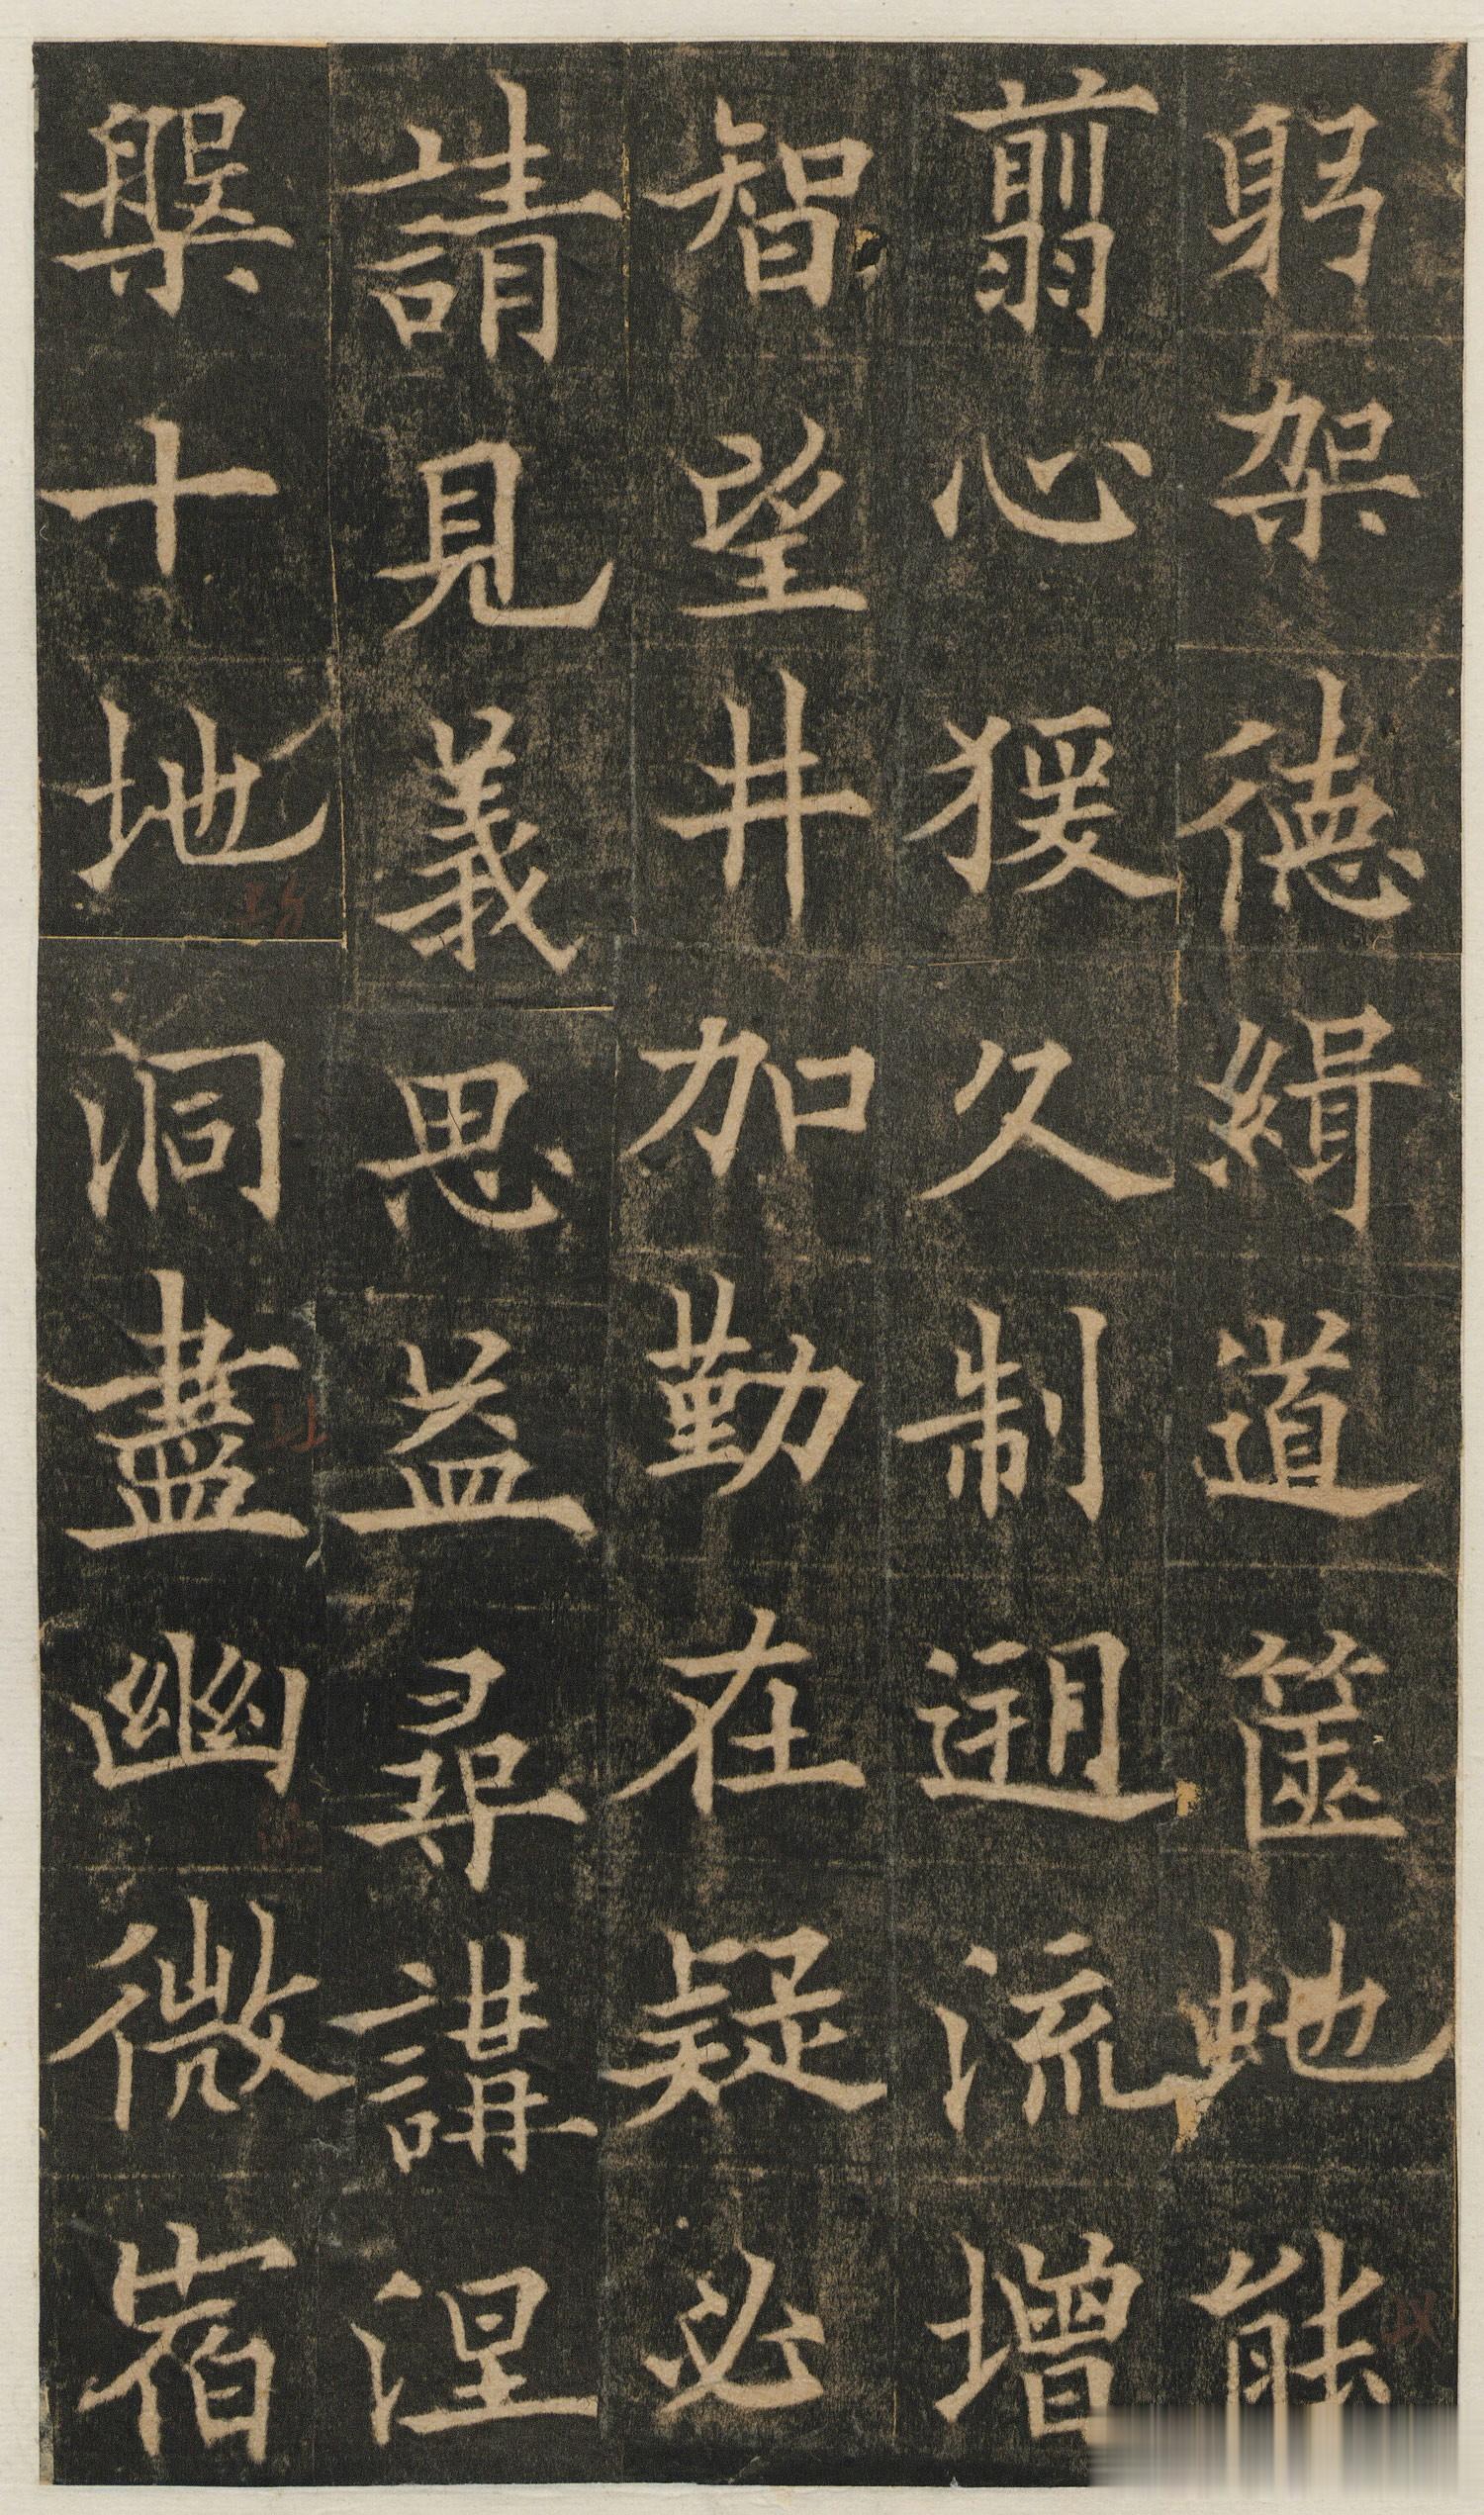 躬架德緝道篋虵能
翦心猨久制遡流增
智望井加勤在疑必
請見義思益尋講涅
槃十地洞盡幽微宿